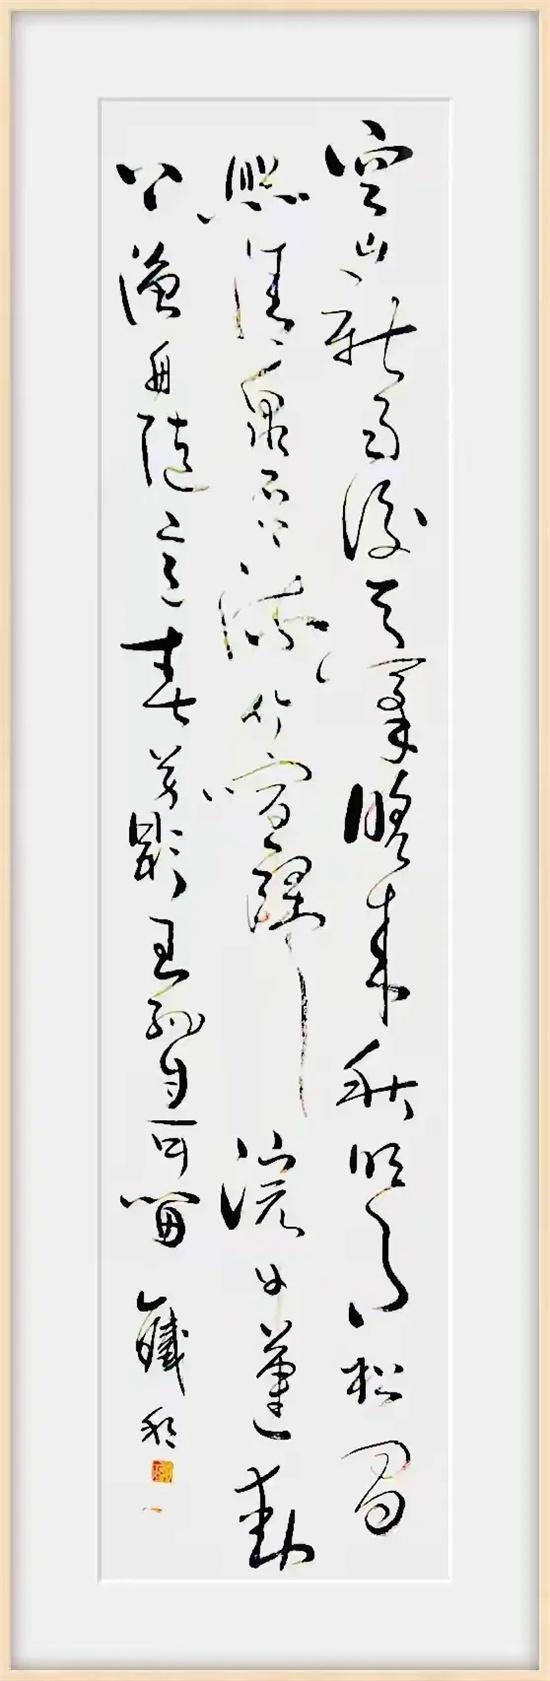 空山新雨後天氣晚來秋明月松間
照清泉石上流竹喧歸浣女蓮動
下漁舟隨意春芳歇王孫自可留